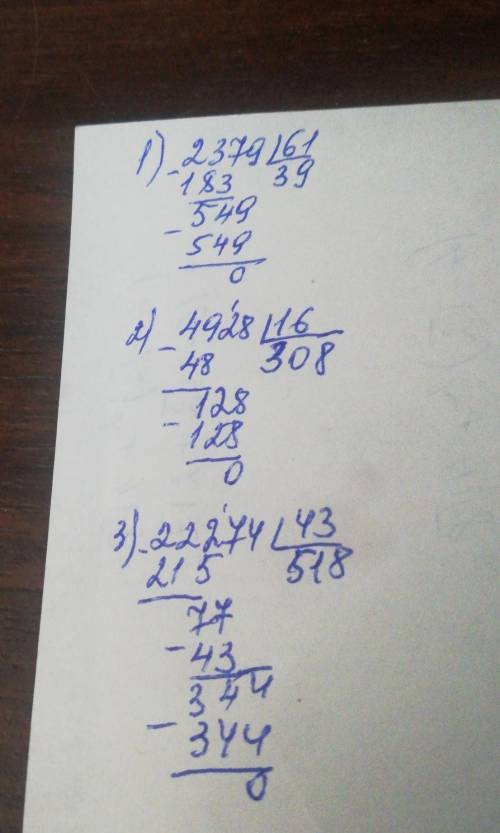 1) - 2379 | 61
183 39
- 549
549
0
2) - 4928 | 16
48 308
- 128
128
0
3) - 22274 | 43
215 518
77
- 43
344
- 344
0